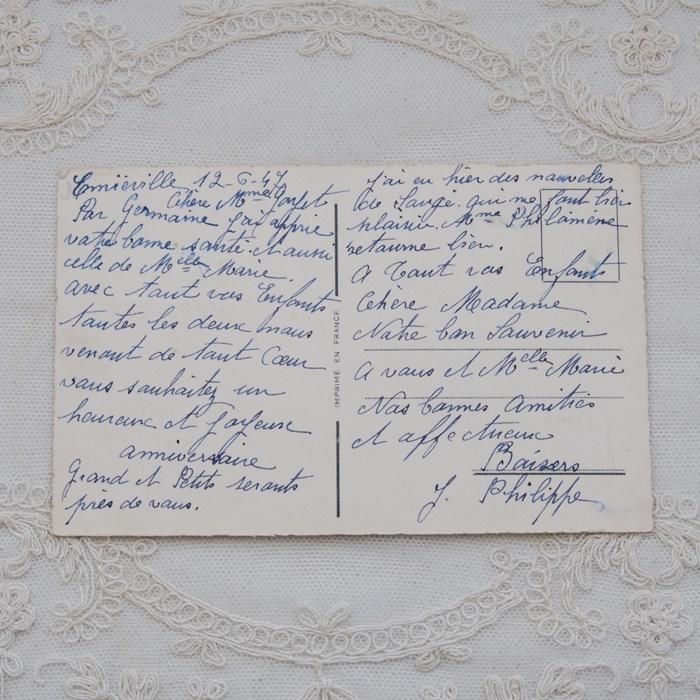 Emiéville 12-6-47
Chère Mme
Par Germaine j'ai apprie
votre bonne santé. et aussi
celle de Melle Marie.
avec tout vos Enfants
toutes les deux nous
venont de tout Cœur
vous souhaitez un
heureux et Joyeuse
anniversaire
Grand et Petits seronts
près de vous.
IMPRIMÉ EN FRANCE
j'ai eu hier des nouvelles
de qui me font bien
plaisir. Mme Philomène
retourne bien.
A tout vos Enfants
Chère Madame
Notre bon Souvenir
A vous et Melle Marie
Nos bonnes Amitiés
et affectueux
Baisers
J. Philippe